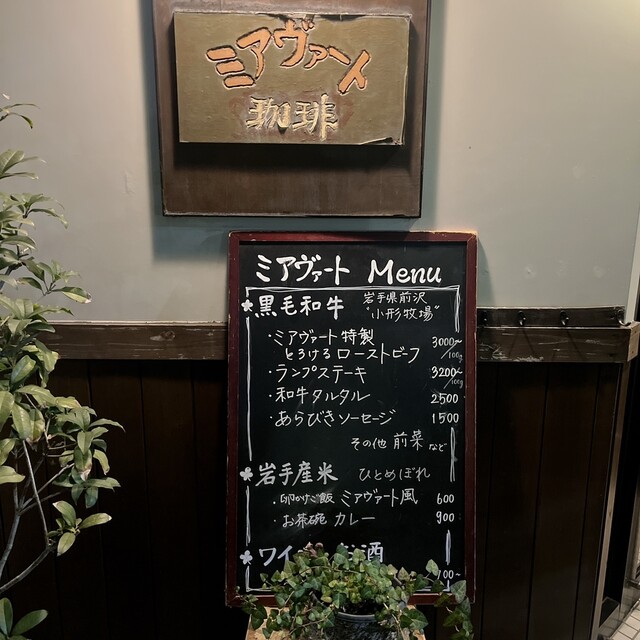 ミアヴァート
珈琲
ミアヴァート Menu
黒毛和牛 岩手県前沢
"小形牧場"
・ミアヴァート特製
とろけるローストビーフ 3000~/100g
・ランプステーキ 3200~/100g
・和牛タルタル 2500
・あらびきソーセージ 1500
その他 前菜 など
岩手産米 ひとめぼれ
・卵かけご飯 ミアヴァート風 600
・お茶碗 カレー 900
ワイ 酒
00~